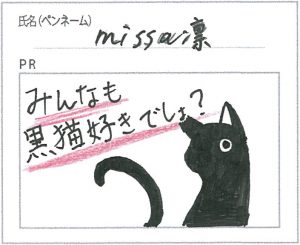 氏名(ペンネーム)
missa凛
PR
みんなも
黒猫好きでしょ?